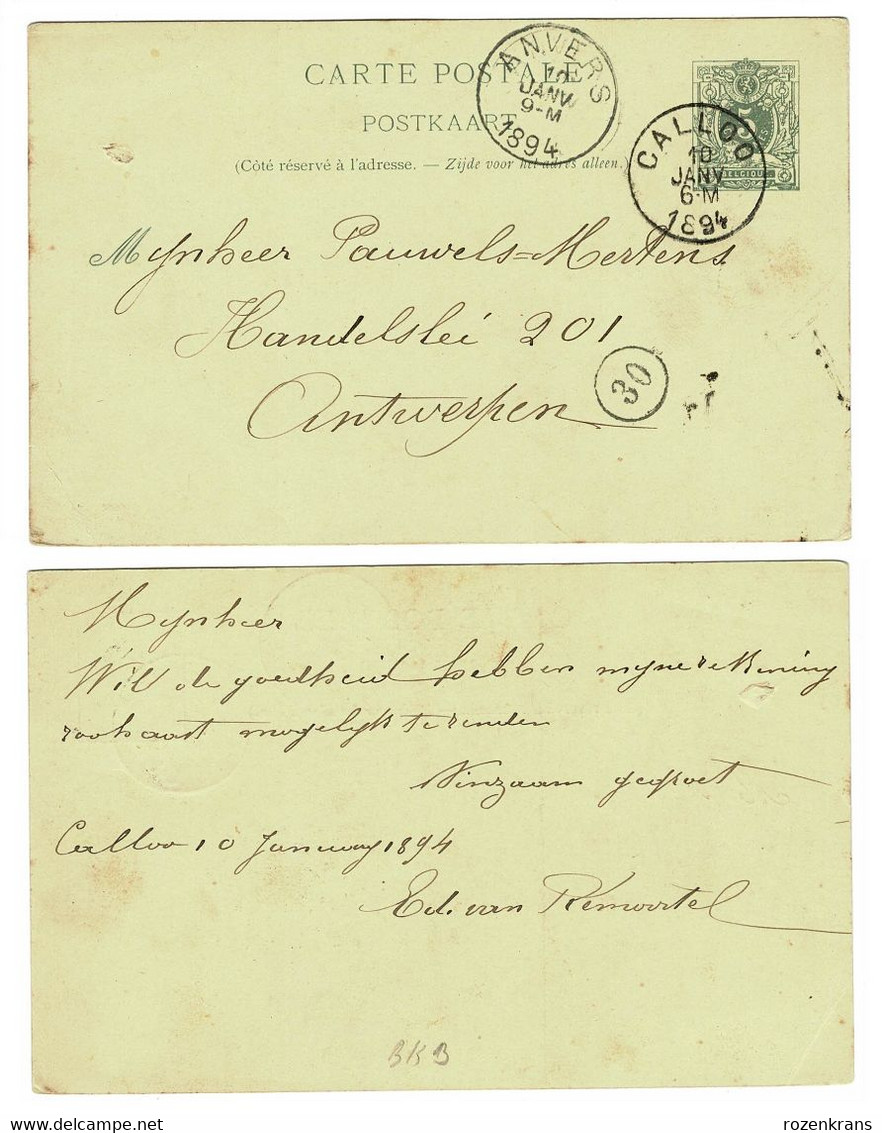 CARTE POSTALE
POSTKAART
(Côté réservé à l'adresse. — Zijde voor het adres alleen.)
ANVERS
JANV
9-M
1894
5
BELGIQUE
CALLOO
10
JANV
6-M
1894
Mynheer Pauwels=Mertens
Handelslei 201
Antwerpen
30
Mynheer
Wil de goedheid hebben myne rekening
zoohaast mogelyk te zenden
Minzaam gegroet
Calloo 10 January 1894
Ed. van Remoortel
BKB
Delcampe.net
rozenkrans